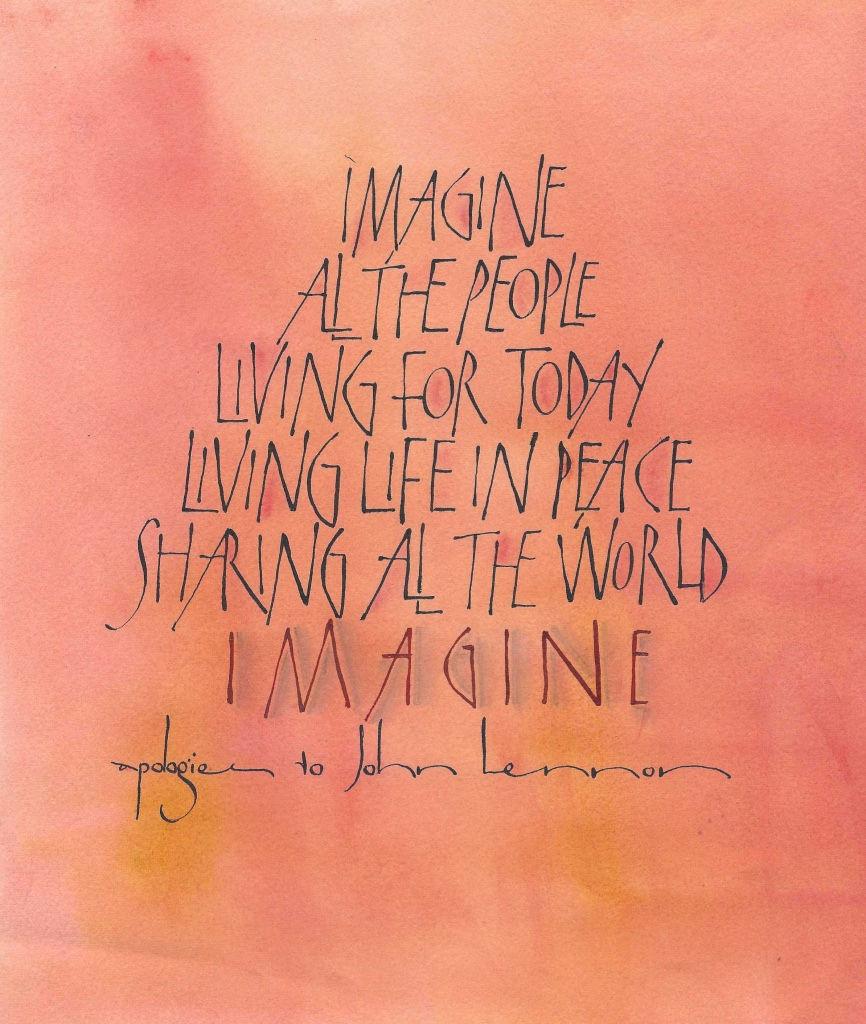 IMAGINE
ALL THE PEOPLE
LIVING FOR TODAY
LIVING LIFE IN PEACE
SHARING ALL THE WORLD
IMAGINE
apologies to John Lennon